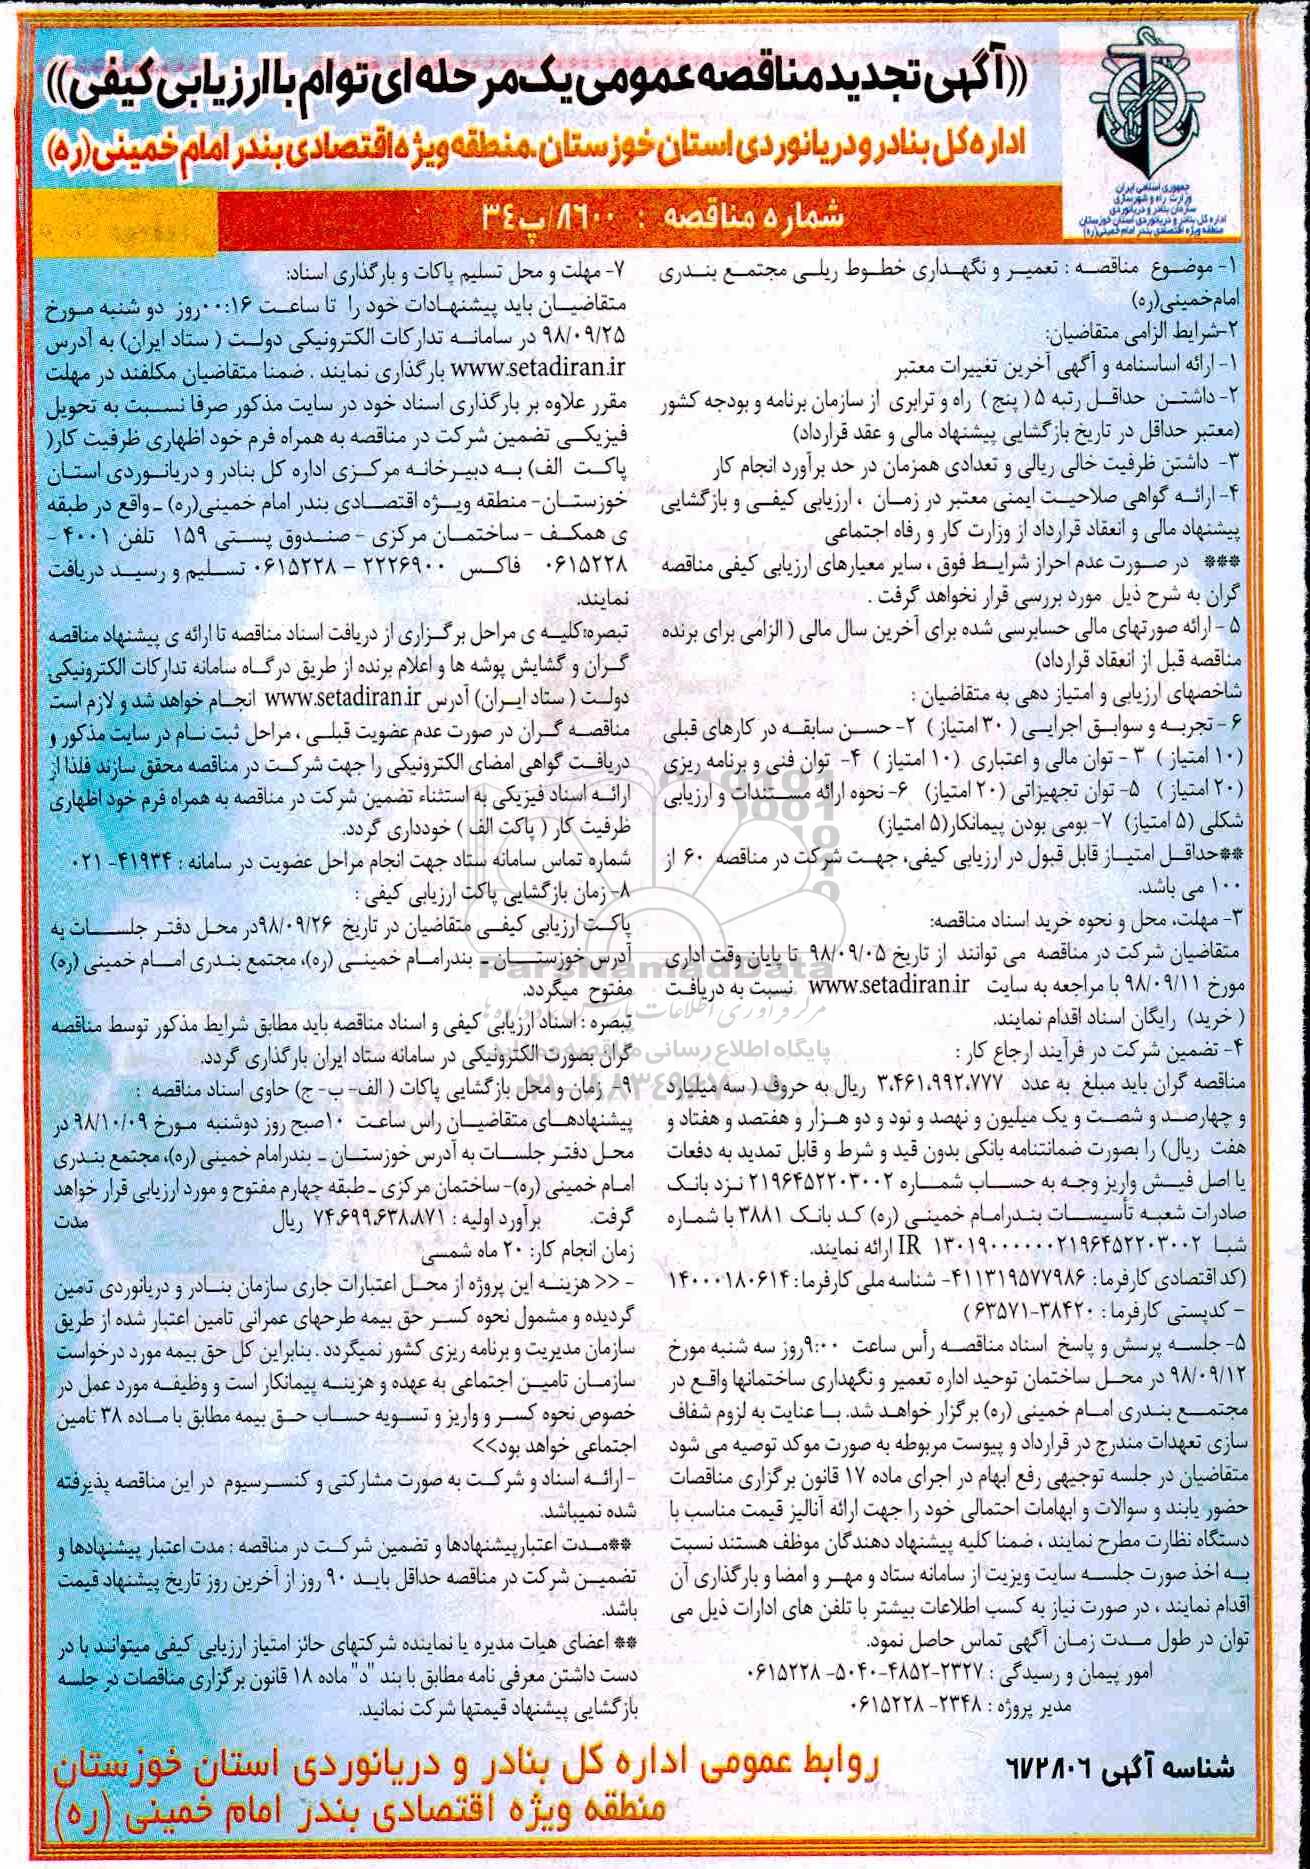 ((آگهی تجدید مناقصه عمومی یک مرحله ای توام با ارزیابی کیفی))
اداره کل بنادر و دریانوردی استان خوزستان.منطقه ویژه اقتصادی بندر امام خمینی(ره)
جمهوری اسلامی ایران
وزارت راه و شهرسازی
سازمان بنادر و دریانوردی
اداره کل بنادر و دریانوردی استان خوزستان
منطقه ویژه اقتصادی بندر امام خمینی(ره)
شماره مناقصه : ۸۶۰۰/پ۳۴
۱- موضوع مناقصه : تعمیر و نگهداری خطوط ریلی مجتمع بندری
امام‌خمینی(ره)
۲-شرایط الزامی متقاضیان:
۱- ارائه اساسنامه و آگهی آخرین تغییرات معتبر
۲- داشتن حداقل رتبه ۵ ( پنج ) راه و ترابری از سازمان برنامه و بودجه کشور
(معتبر حداقل در تاریخ بازگشایی پیشنهاد مالی و عقد قرارداد)
۳- داشتن ظرفیت خالی ریالی و تعدادی همزمان در حد برآورد انجام کار
۴- ارائه گواهی صلاحیت ایمنی معتبر در زمان ، ارزیابی کیفی و بازگشایی
پیشنهاد مالی و انعقاد قرارداد از وزارت کار و رفاه اجتماعی
*** در صورت عدم احراز شرایط فوق ، سایر معیارهای ارزیابی کیفی مناقصه
گران به شرح ذیل مورد بررسی قرار نخواهد گرفت .
۵ - ارائه صورتهای مالی حسابرسی شده برای آخرین سال مالی ( الزامی برای برنده
مناقصه قبل از انعقاد قرارداد)
شاخصهای ارزیابی و امتیاز دهی به متقاضیان :
۶ - تجربه و سوابق اجرایی ( ۳۰ امتیاز ) ۲- حسن سابقه در کارهای قبلی
(۱۰ امتیاز ) ۳ - توان مالی و اعتباری (۱۰ امتیاز ) ۴- توان فنی و برنامه ریزی
(۲۰ امتیاز ) ۵- توان تجهیزاتی (۲۰ امتیاز) ۶- نحوه ارائه مستندات و ارزیابی
شکلی (۵ امتیاز) ۷- بومی بودن پیمانکار(۵ امتیاز)
**حداقل امتیاز قابل قبول در ارزیابی کیفی، جهت شرکت در مناقصه ۶۰ از
۱۰۰ می باشد.
۳- مهلت، محل و نحوه خرید اسناد مناقصه:
متقاضیان شرکت در مناقصه می توانند از تاریخ ۹۸/۰۹/۰۵ تا پایان وقت اداری
مورخ ۹۸/۰۹/۱۱ با مراجعه به سایت www.setadiran.ir نسبت به دریافت
( خرید) رایگان اسناد اقدام نمایند.
۴- تضمین شرکت در فرآیند ارجاع کار :
مناقصه گران باید مبلغ به عدد ۳،۴۶۱،۹۹۲،۷۷۷ ریال به حروف ( سه میلیارد
و چهارصد و شصت و یک میلیون و نهصد و نود و دو هزار و هفتصد و هفتاد و
هفت ریال) را بصورت ضمانتنامه بانکی بدون قید و شرط و قابل تمدید به دفعات
یا اصل فیش واریز وجه به حساب شماره ۲۱۹۶۴۵۲۲۰۳۰۰۲ نزد بانک
صادرات شعبه تأسیسات بندرامام خمینی (ره) کد بانک ۳۸۸۱ با شماره
شبا IR ۱۳۰۱۹۰۰۰۰۰۰۲۱۹۶۴۵۲۲۰۳۰۰۲ ارائه نمایند.
(کد اقتصادی کارفرما: ۴۱۱۳۱۹۵۷۷۹۸۶- شناسه ملی کارفرما: ۱۴۰۰۰۱۸۰۶۱۴
- کدپستی کارفرما : ۳۸۴۲۰-۶۳۵۷۱ )
۵- جلسه پرسش و پاسخ اسناد مناقصه رأس ساعت ۹:۰۰روز سه شنبه مورخ
۹۸/۰۹/۱۲ در محل ساختمان توحید اداره تعمیر و نگهداری ساختمانها واقع در
مجتمع بندری امام خمینی (ره) برگزار خواهد شد. با عنایت به لزوم شفاف
سازی تعهدات مندرج در قرارداد و پیوست مربوطه به صورت موکد توصیه می شود
متقاضیان در جلسه توجیهی رفع ابهام در اجرای ماده ۱۷ قانون برگزاری مناقصات
حضور یابند و سوالات و ابهامات احتمالی خود را جهت ارائه آنالیز قیمت مناسب با
دستگاه نظارت مطرح نمایند ، ضمنا کلیه پیشنهاد دهندگان موظف هستند نسبت
به اخذ صورت جلسه سایت ویزیت از سامانه ستاد و مهر و امضا و بارگذاری آن
اقدام نمایند ، در صورت نیاز به کسب اطلاعات بیشتر با تلفن های ادارات ذیل می
توان در طول مدت زمان آگهی تماس حاصل نمود.
امور پیمان و رسیدگی : ۲۳۲۷-۴۸۵۲-۵۰۴۰- ۰۶۱۵۲۲۸
مدیر پروژه : ۲۳۴۸- ۰۶۱۵۲۲۸
۷- مهلت و محل تسلیم پاکات و بارگذاری اسناد:
متقاضیان باید پیشنهادات خود را تا ساعت ۰۰:۱۶روز دو شنبه مورخ
۹۸/۰۹/۲۵ در سامانه تدارکات الکترونیکی دولت ( ستاد ایران) به آدرس
www.setadiran.ir بارگذاری نمایند . ضمنا متقاضیان مکلفند در مهلت
مقرر علاوه بر بارگذاری اسناد خود در سایت مذکور صرفا نسبت به تحویل
فیزیکی تضمین شرکت در مناقصه به همراه فرم خود اظهاری ظرفیت کار(
پاکت الف) به دبیرخانه مرکزی اداره کل بنادر و دریانوردی استان
خوزستان- منطقه ویژه اقتصادی بندر امام خمینی(ره) ـ واقع در طبقه
ی همکف - ساختمان مرکزی - صندوق پستی ۱۵۹ تلفن ۴۰۰۱ -
۰۶۱۵۲۲۸ فاکس ۲۲۲۶۹۰۰ - ۰۶۱۵۲۲۸ تسلیم و رسید دریافت
نمایند.
تبصره:کلیه ی مراحل برگزاری از دریافت اسناد مناقصه تا ارائه ی پیشنهاد مناقصه
گران و گشایش پوشه ها و اعلام برنده از طریق درگاه سامانه تدارکات الکترونیکی
دولت ( ستاد ایران) آدرس www.setadiran.ir انجام خواهد شد و لازم است
مناقصه گران در صورت عدم عضویت قبلی ، مراحل ثبت نام در سایت مذکور و
دریافت گواهی امضای الکترونیکی را جهت شرکت در مناقصه محقق سازند فلذا از
ارائه اسناد فیزیکی به استثناء تضمین شرکت در مناقصه به همراه فرم خود اظهاری
ظرفیت کار ( پاکت الف ) خودداری گردد.
شماره تماس سامانه ستاد جهت انجام مراحل عضویت در سامانه : ۴۱۹۳۴- ۰۲۱
۸- زمان بازگشایی پاکت ارزیابی کیفی :
پاکت ارزیابی کیفی متقاضیان در تاریخ ۹۸/۰۹/۲۶در محل دفتر جلسات به
آدرس خوزستان ـ بندرامام خمینی (ره)، مجتمع بندری امام خمینی (ره)
مفتوح میگردد.
تبصره : اسناد ارزیابی کیفی و اسناد مناقصه باید مطابق شرایط مذکور توسط مناقصه
گران بصورت الکترونیکی در سامانه ستاد ایران بارگذاری گردد.
۹- زمان و محل بازگشایی پاکات ( الف- ب- ج) حاوی اسناد مناقصه :
پیشنهادهای متقاضیان راس ساعت ۱۰صبح روز دوشنبه مورخ ۹۸/۱۰/۰۹ در
محل دفتر جلسات به آدرس خوزستان ـ بندرامام خمینی (ره)، مجتمع بندری
امام خمینی (ره)- ساختمان مرکزی ـ طبقه چهارم مفتوح و مورد ارزیابی قرار خواهد
گرفت. برآورد اولیه : ۷۴،۶۹۹،۶۳۸،۸۷۱ ریال مدت
زمان انجام کار: ۲۰ ماه شمسی
- << هزینه این پروژه از محل اعتبارات جاری سازمان بنادر و دریانوردی تامین
گردیده و مشمول نحوه کسر حق بیمه طرحهای عمرانی تامین اعتبار شده از طریق
سازمان مدیریت و برنامه ریزی کشور نمیگردد . بنابراین کل حق بیمه مورد درخواست
سازمان تامین اجتماعی به عهده و هزینه پیمانکار است و وظیفه مورد عمل در
خصوص نحوه کسر و واریز و تسویه حساب حق بیمه مطابق با ماده ۳۸ تامین
اجتماعی خواهد بود>>
- ارائه اسناد و شرکت به صورت مشارکتی و کنسرسیوم در این مناقصه پذیرفته
شده نمیباشد.
**مدت اعتبارپیشنهادها و تضمین شرکت در مناقصه : مدت اعتبار پیشنهادها و
تضمین شرکت در مناقصه حداقل باید ۹۰ روز از آخرین روز تاریخ پیشنهاد قیمت
باشد.
** اعضای هیات مدیره یا نماینده شرکتهای حائز امتیاز ارزیابی کیفی میتوانند با در
دست داشتن معرفی نامه مطابق با بند "د" ماده ۱۸ قانون برگزاری مناقصات در جلسه
بازگشایی پیشنهاد قیمتها شرکت نمانید.
شناسه آگهی ۶۷۲۸۰۶
روابط عمومی اداره کل بنادر و دریانوردی استان خوزستان
منطقه ویژه اقتصادی بندر امام خمینی (ره)
ParsNamadData
پایگاه اطلاع رسانی مناقصه